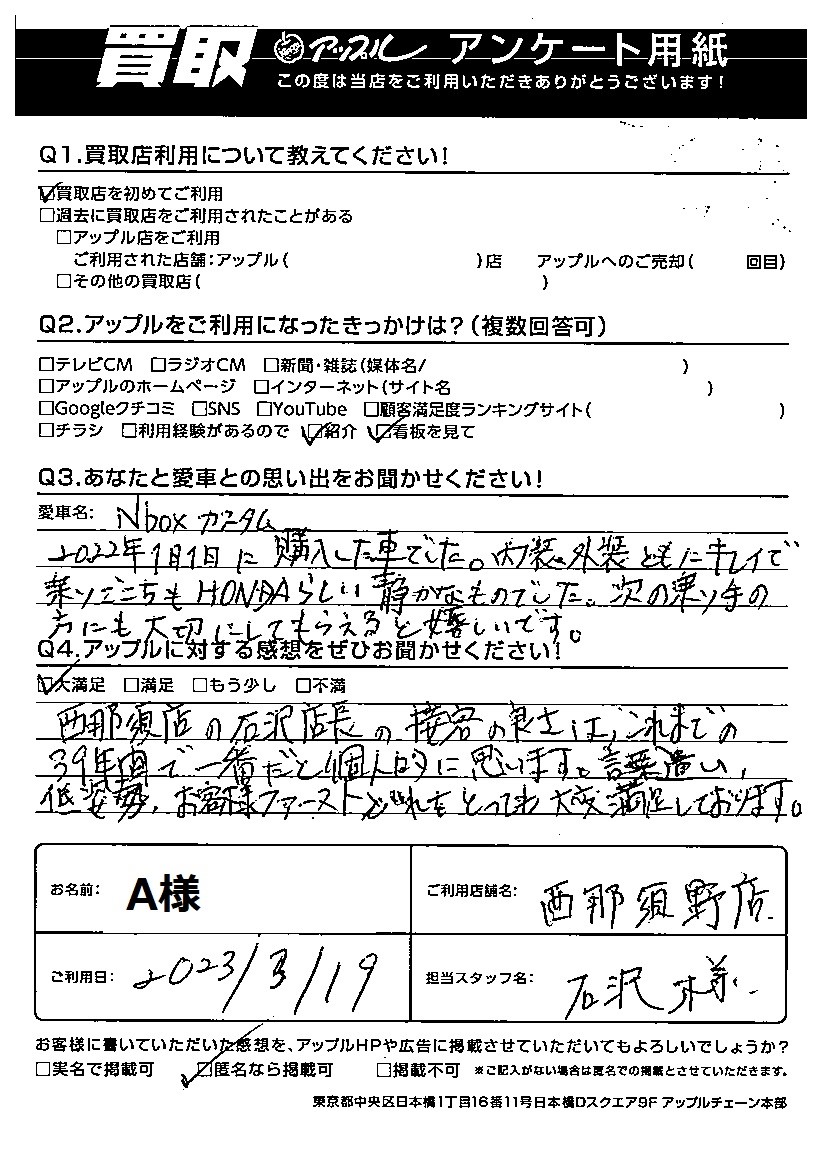 買取 アップル アンケート用紙
この度は当店をご利用いただきありがとうございます!
Q1.買取店利用について教えてください!
☑買取店を初めてご利用
□過去に買取店をご利用されたことがある
□アップル店をご利用
ご利用された店舗:アップル( )店 アップルへのご売却( 回目)
□その他の買取店( )
Q2.アップルをご利用になったきっかけは?(複数回答可)
□テレビCM □ラジオCM □新聞・雑誌(媒体名/ )
□アップルのホームページ □インターネット(サイト名 )
□Googleクチコミ □SNS □YouTube □顧客満足度ランキングサイト( )
□チラシ □利用経験があるので ☑紹介 ☑看板を見て
Q3.あなたと愛車との思い出をお聞かせください!
愛車名: Nbox カスタム
2022年1月1日に購入した車でした。内装、外装ともにキレイで
乗りごこちもHONDAらしい静かなものでした。次の乗り手の
方にも大切にしてもらえると嬉しいです。
Q4.アップルに対する感想をぜひお聞かせください!
☑大満足 □満足 □もう少し □不満
西那須店の石沢店長の接客の良さは、これまでの
39年間で一番だと個人的に思います。言葉遣い、
低姿勢、お客様ファーストどれをとっても大変満足しております。
お名前: A様 ご利用店舗名: 西那須野店
ご利用日: 2023/3/19 担当スタッフ名: 石沢様
お客様に書いていただいた感想を、アップルHPや広告に掲載させていただいてもよろしいでしょうか?
□実名で掲載可 ☑匿名なら掲載可 □掲載不可 ※ご記入がない場合は匿名での掲載とさせていただきます。
東京都中央区日本橋1丁目16番11号日本橋Dスクエア9F アップルチェーン本部